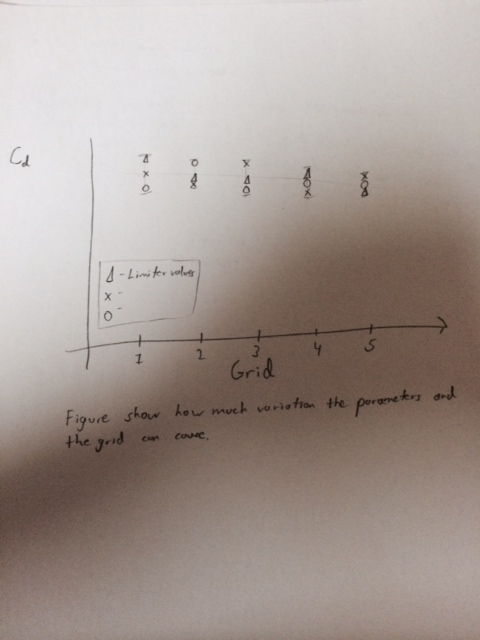 Cd
Δ - Limiter values
x -
o -
1 2 3 4 5
Grid
Figure show how much variation the parameters and
the grid can cause.